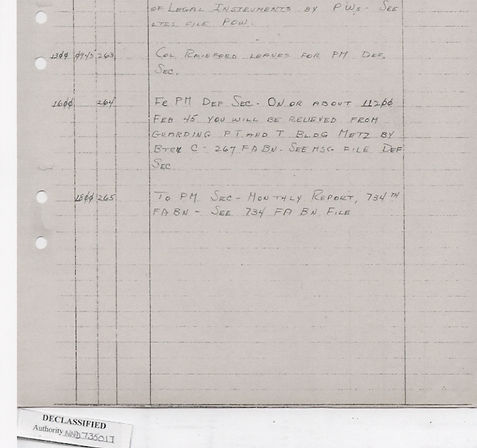 OF LEGAL INSTRUMENTS BY PWS - SEE
LTRS FILE POW.
1300 0945 263 COL RAINEFORD LEAVES FOR PM DEF.
SEC.
1600 264 FR PM DEF SEC - ON OR ABOUT 11200
FEB 45 YOU WILL BE RELIEVED FROM
GUARDING P.T. AND T BLDG METZ BY
BTRY C - 267 FA BN. SEE MSG. FILE DEF
SEC
1500 265 TO PM SEC - MONTHLY REPORT, 734TH
FA BN - SEE 734 FA BN FILE
DECLASSIFIED
Authority NND735017